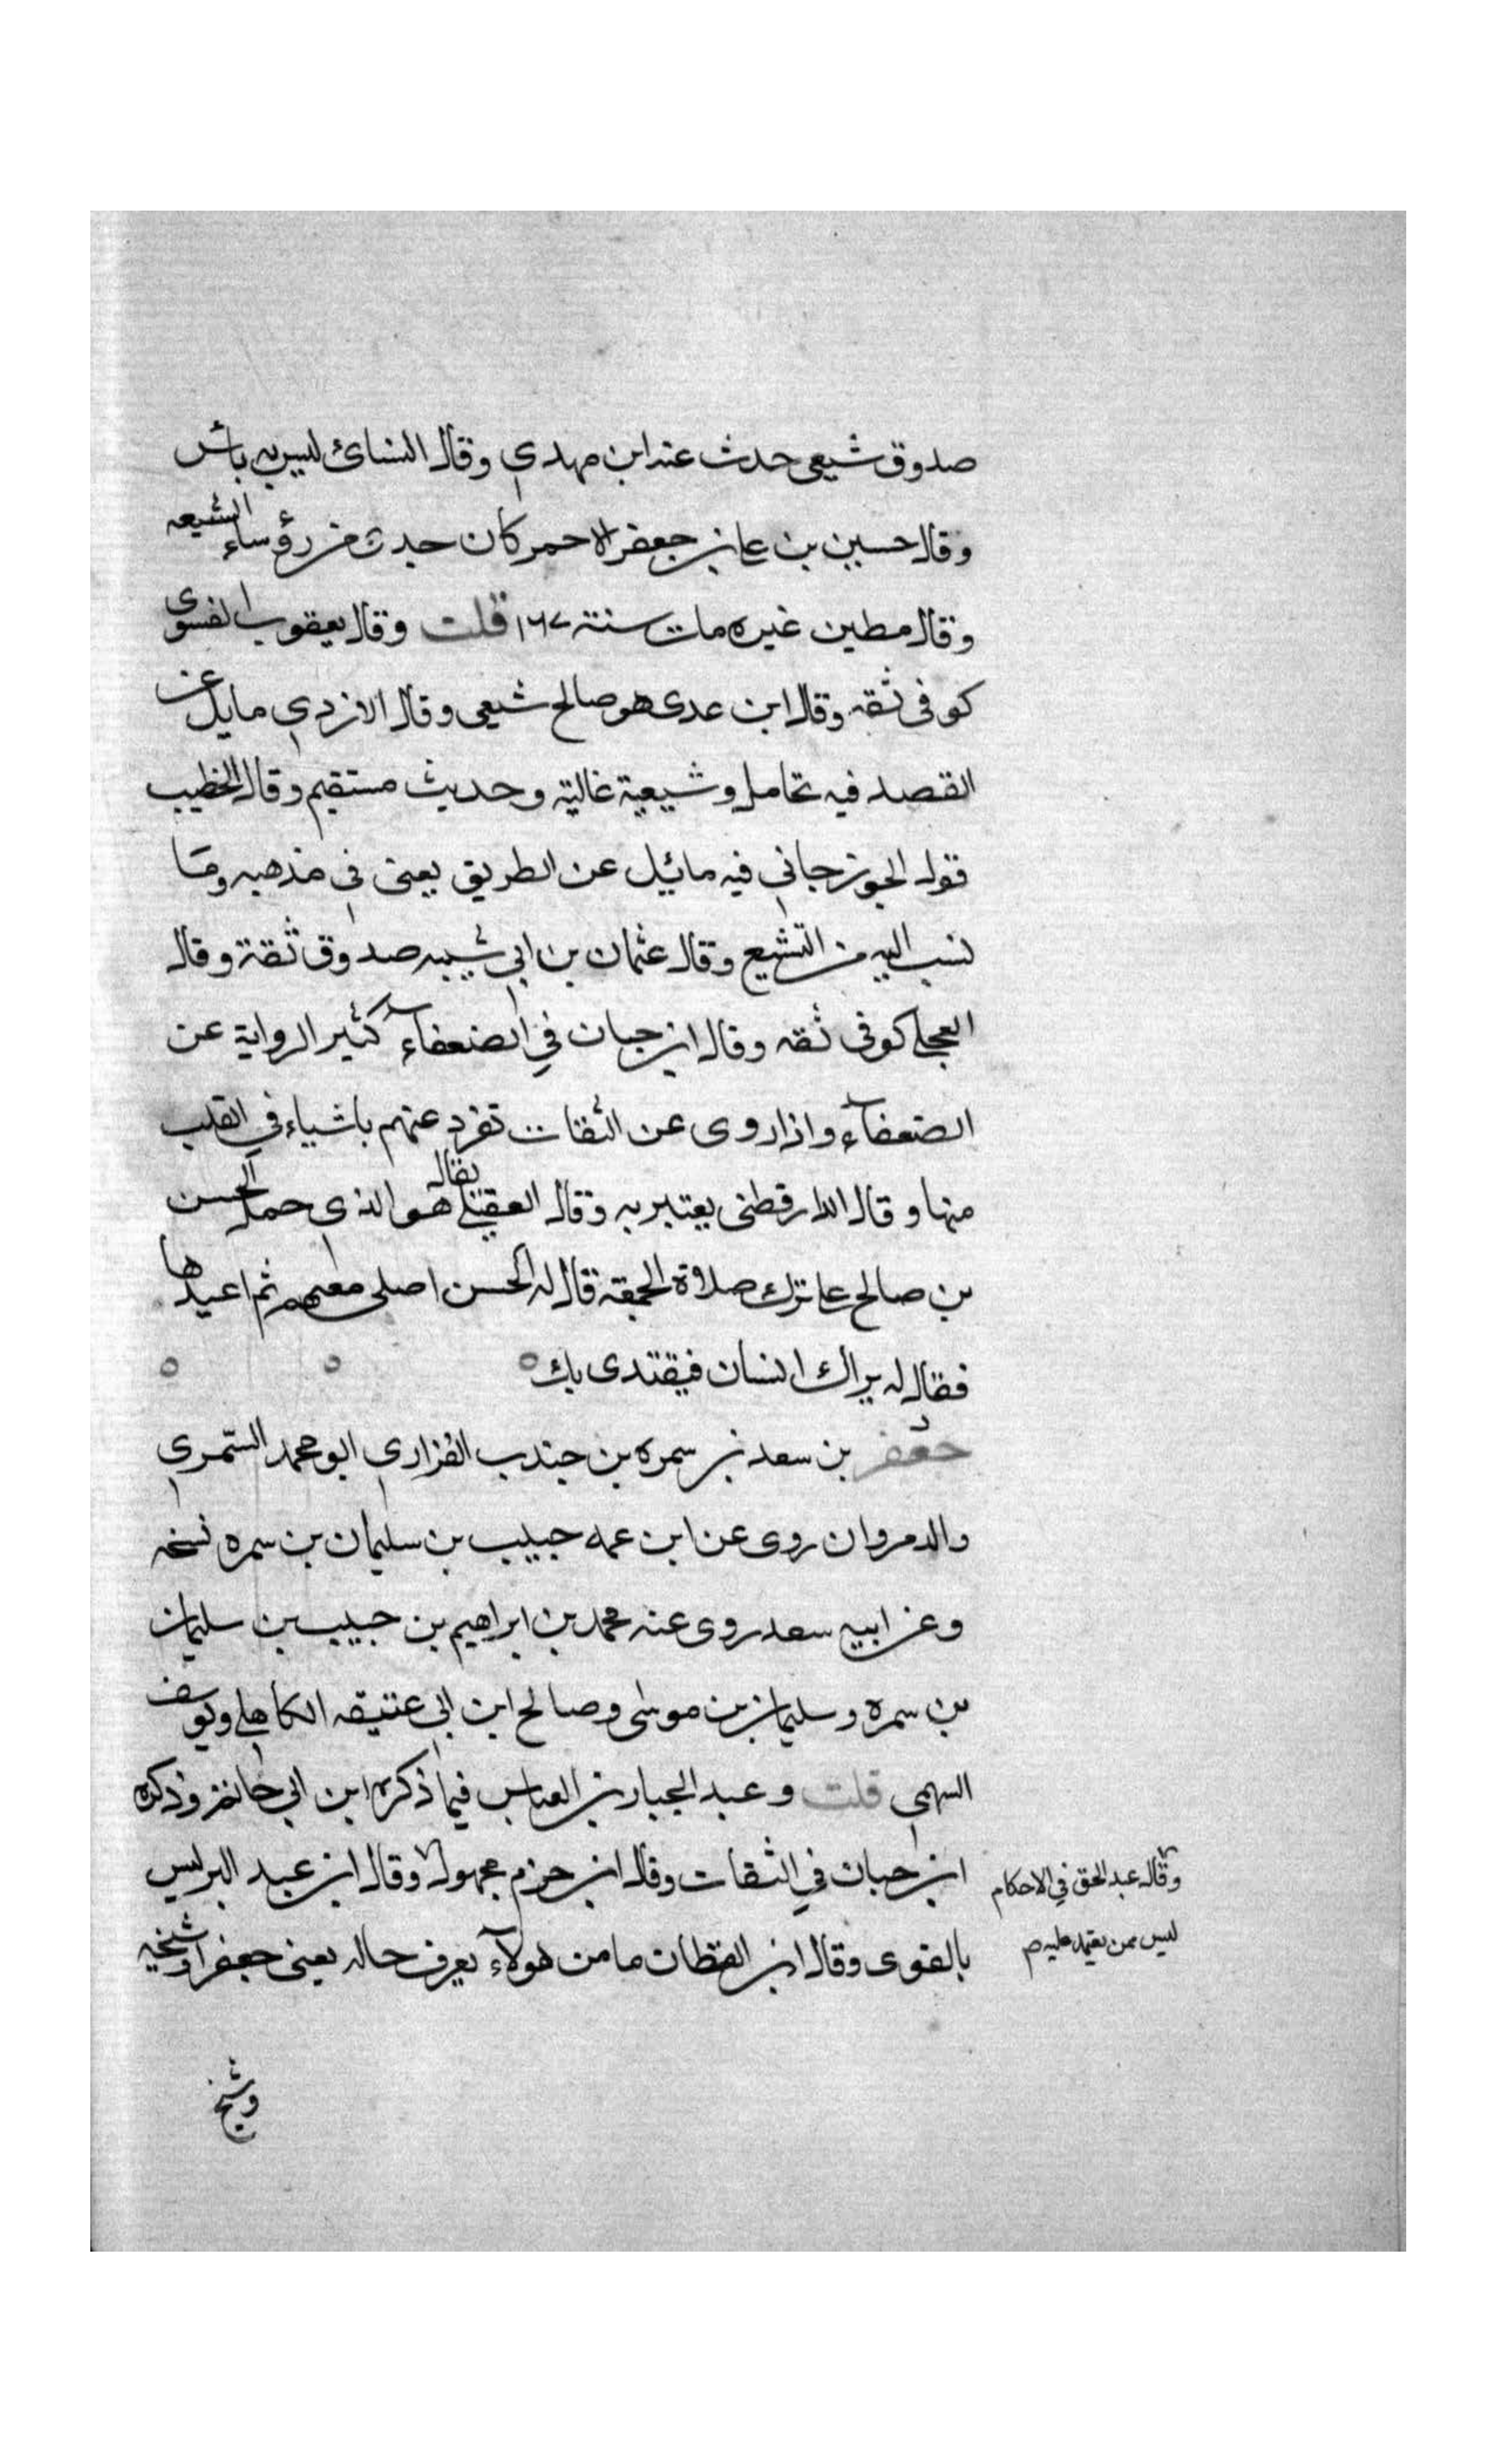 صدوق شيعي حدث عنه ابن مهدي وقال النسائى ليس به باس
وقال حسين بن علي بن جعفر الاحمر كان حدى من رؤساء الشيعه
وقال مطين غيره مات سنة ١٦٧ قلت وقال يعقوب الفسوى
كوفى ثقه وقال ابن عدى هو صالح شيعى وقال الازدي مايل عن
القصد فيه تحامل وشيعية غالية وحديثه مستقيم وقال الخطيب
قول الجوزجاني فيه مائيل عن الطريق يعنى فى مذهبه وما
نسب اليه من التشيع وقال عثمان بن ابي شيبه صدوق ثقة وقال
العجلي كوفى ثقه وقال ابن حبان في الضعفآء كثير الرواية عن
الضعفآء واذا روى عن الثقات تفرد عنهم باشياء في القلب
منها وقال الدارقطنى يعتبر به وقال العقيلي يقال هو الذى حمل الحسن
بن صالح على ترك صلاة الجمعة قال له الحسن اصلى معهم ثم اعيدها
فقال له يراك انسان فيقتدى بك
جعفر بن سعد بن سمره بن جندب الفزاري ابو محمد السمري
والد مروان روى عن ابن عمه حبيب بن سليمان بن سمره نسخه
وعن ابيه سعد روى عنه محمد بن ابراهيم بن حبيب بن سليمان
بن سمره وسليمان بن موسى وصالح ابن ابى عتيقه الكاهلي ويوسف
السهمى قلت وعبد الجبار بن العباس فيما ذكره ابن ابي حاتم وذكره
ابن حبان في الثقات وقال ابن حزم مجهول وقال ابن عبد البر ليس
وقال عبد الحق في الاحكام
ليس ممن يعتمد عليه صح
بالقوى وقال ابن القطان ما من هولآء يعرف حاله يعنى جعفرا وشيخه
وشيخ